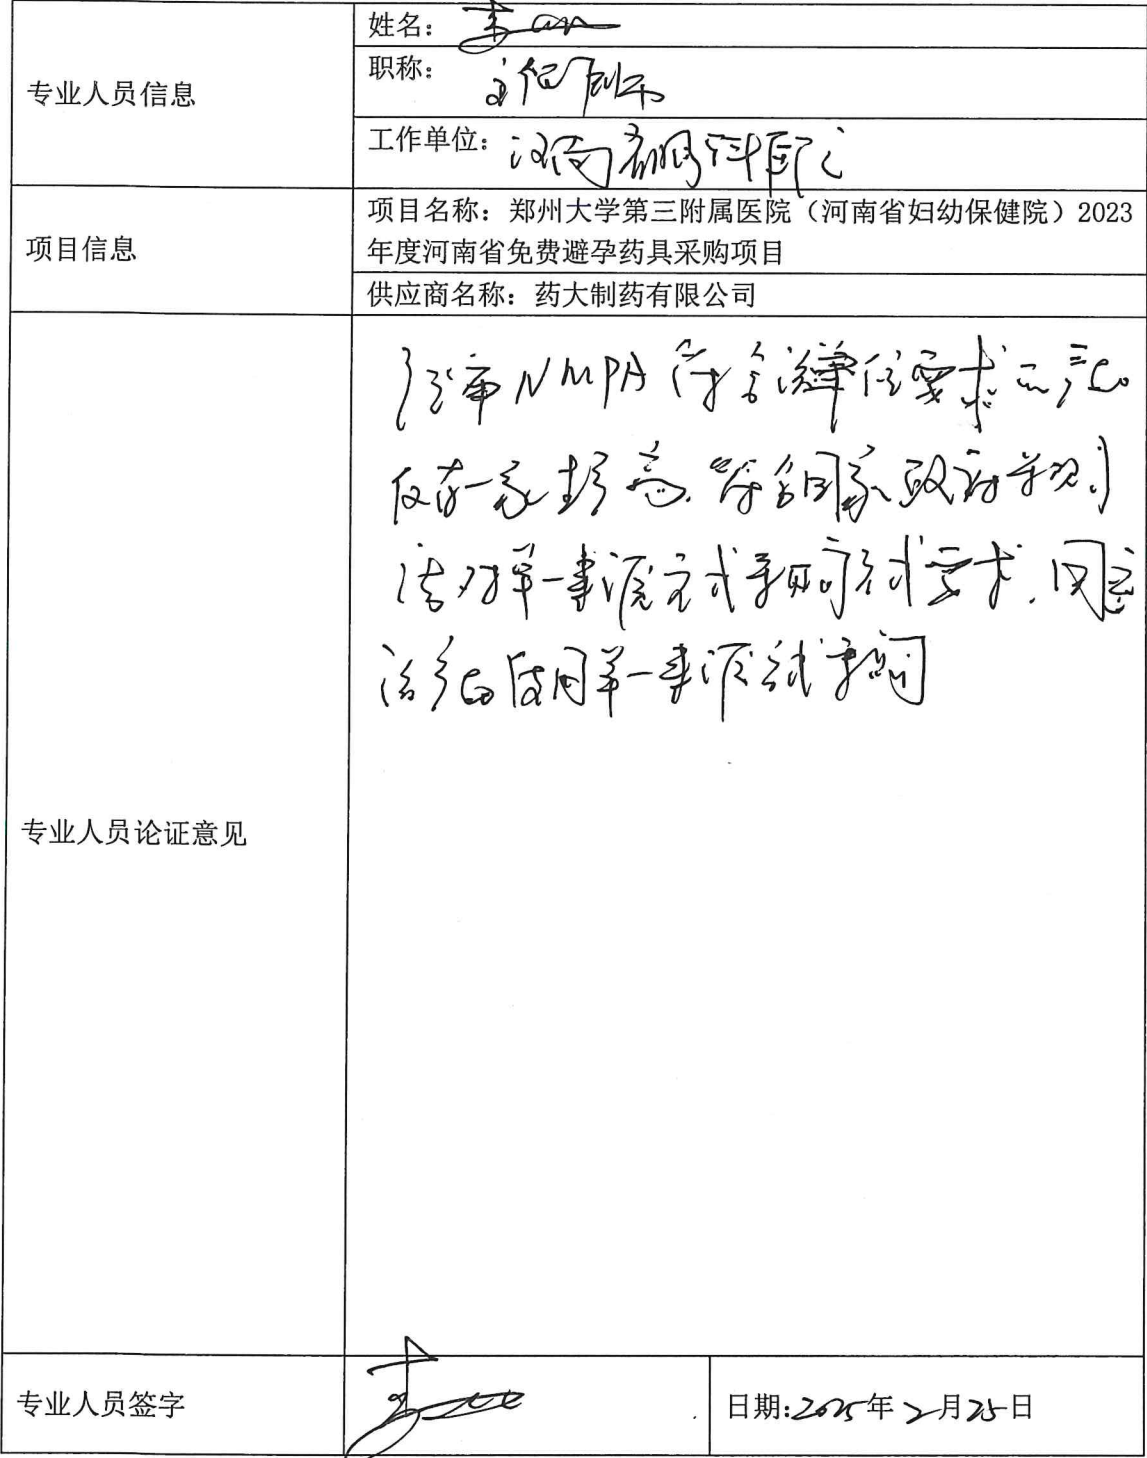 专业人员信息
姓名：
职称： 主任药师
工作单位： 河南省胸科医院
项目信息
项目名称：郑州大学第三附属医院（河南省妇幼保健院）2023
年度河南省免费避孕药具采购项目
供应商名称：药大制药有限公司
专业人员论证意见
NMPA 符合 单位要求 产品
仅有一家 符合国家政府采购
法对单一来源方式采购 方式要求，同意
该产品使用单一来源 方式采购
专业人员签字
日期:2025年2月25日